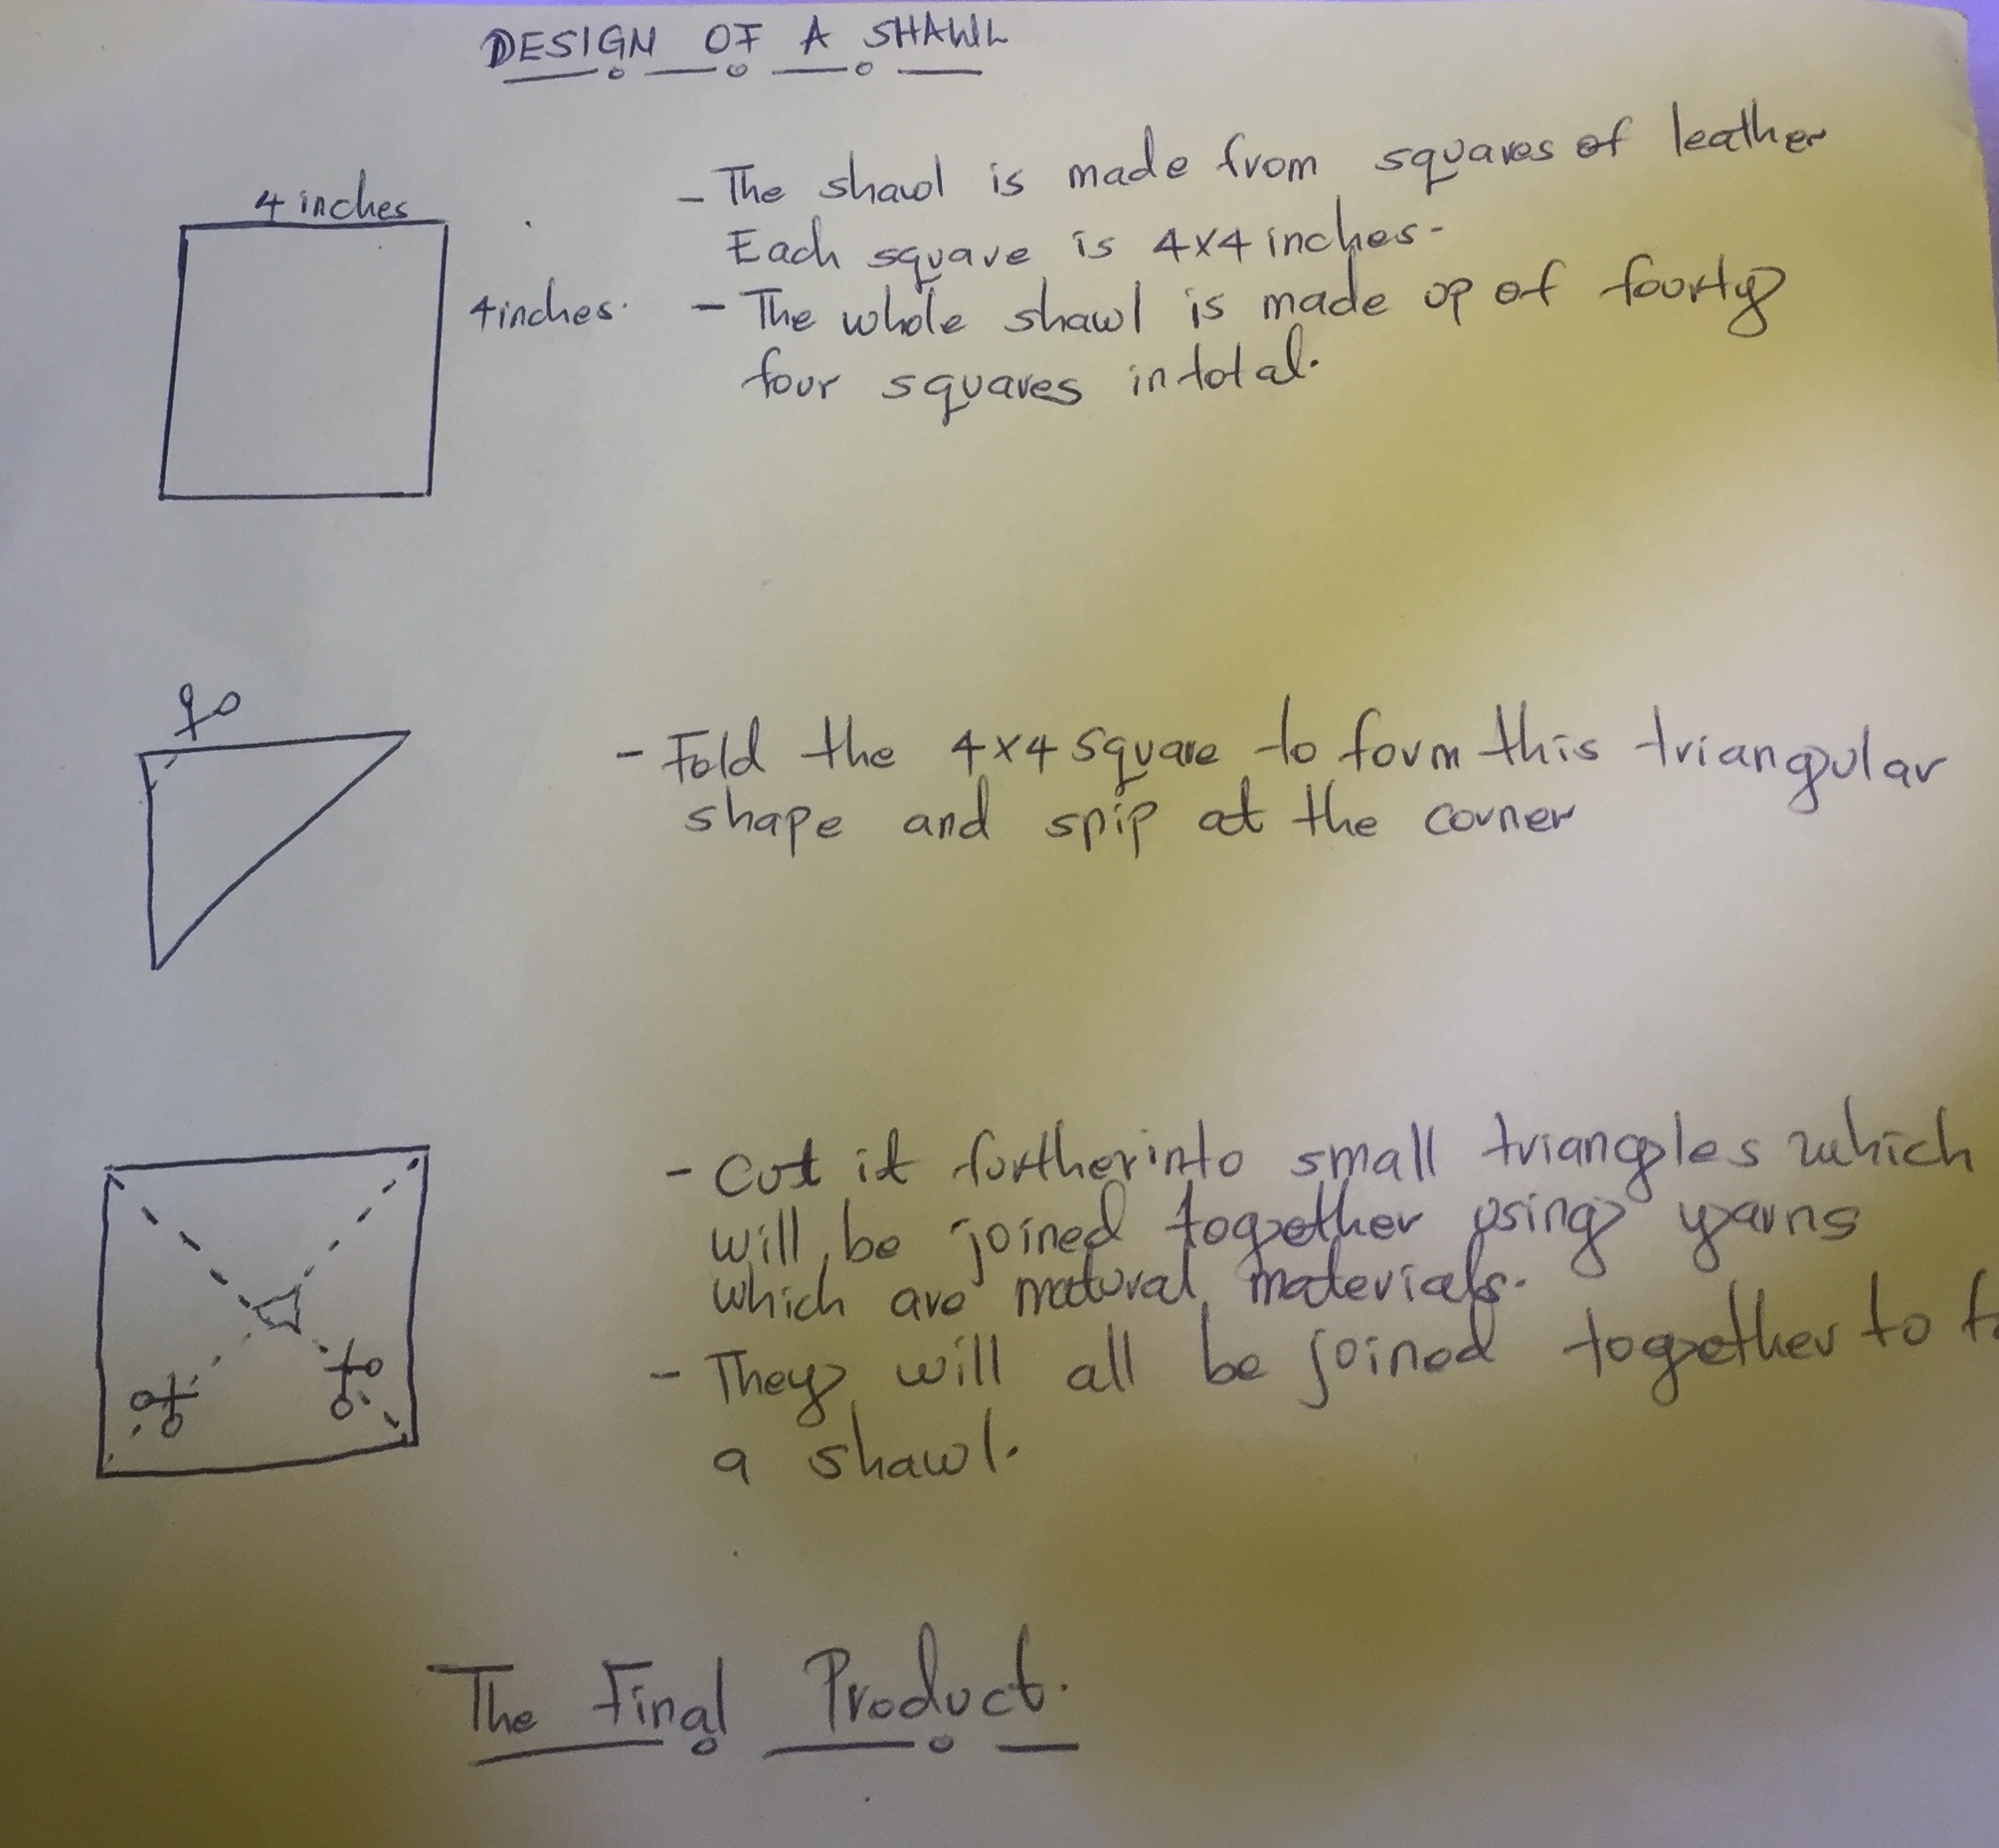 DESIGN OF A SHAWL
4 inches
4inches.
- The shawl is made from squares of leather
Each square is 4x4 inches-
- The whole shawl is made up of fourty
four squares in total.
- Fold the 4x4 square to form this triangular
shape and snip at the corner
- Cut it further into small triangles which
will be joined together using yarns
which are natural materials.
- They will all be joined together to
a shawl.
The Final Product.